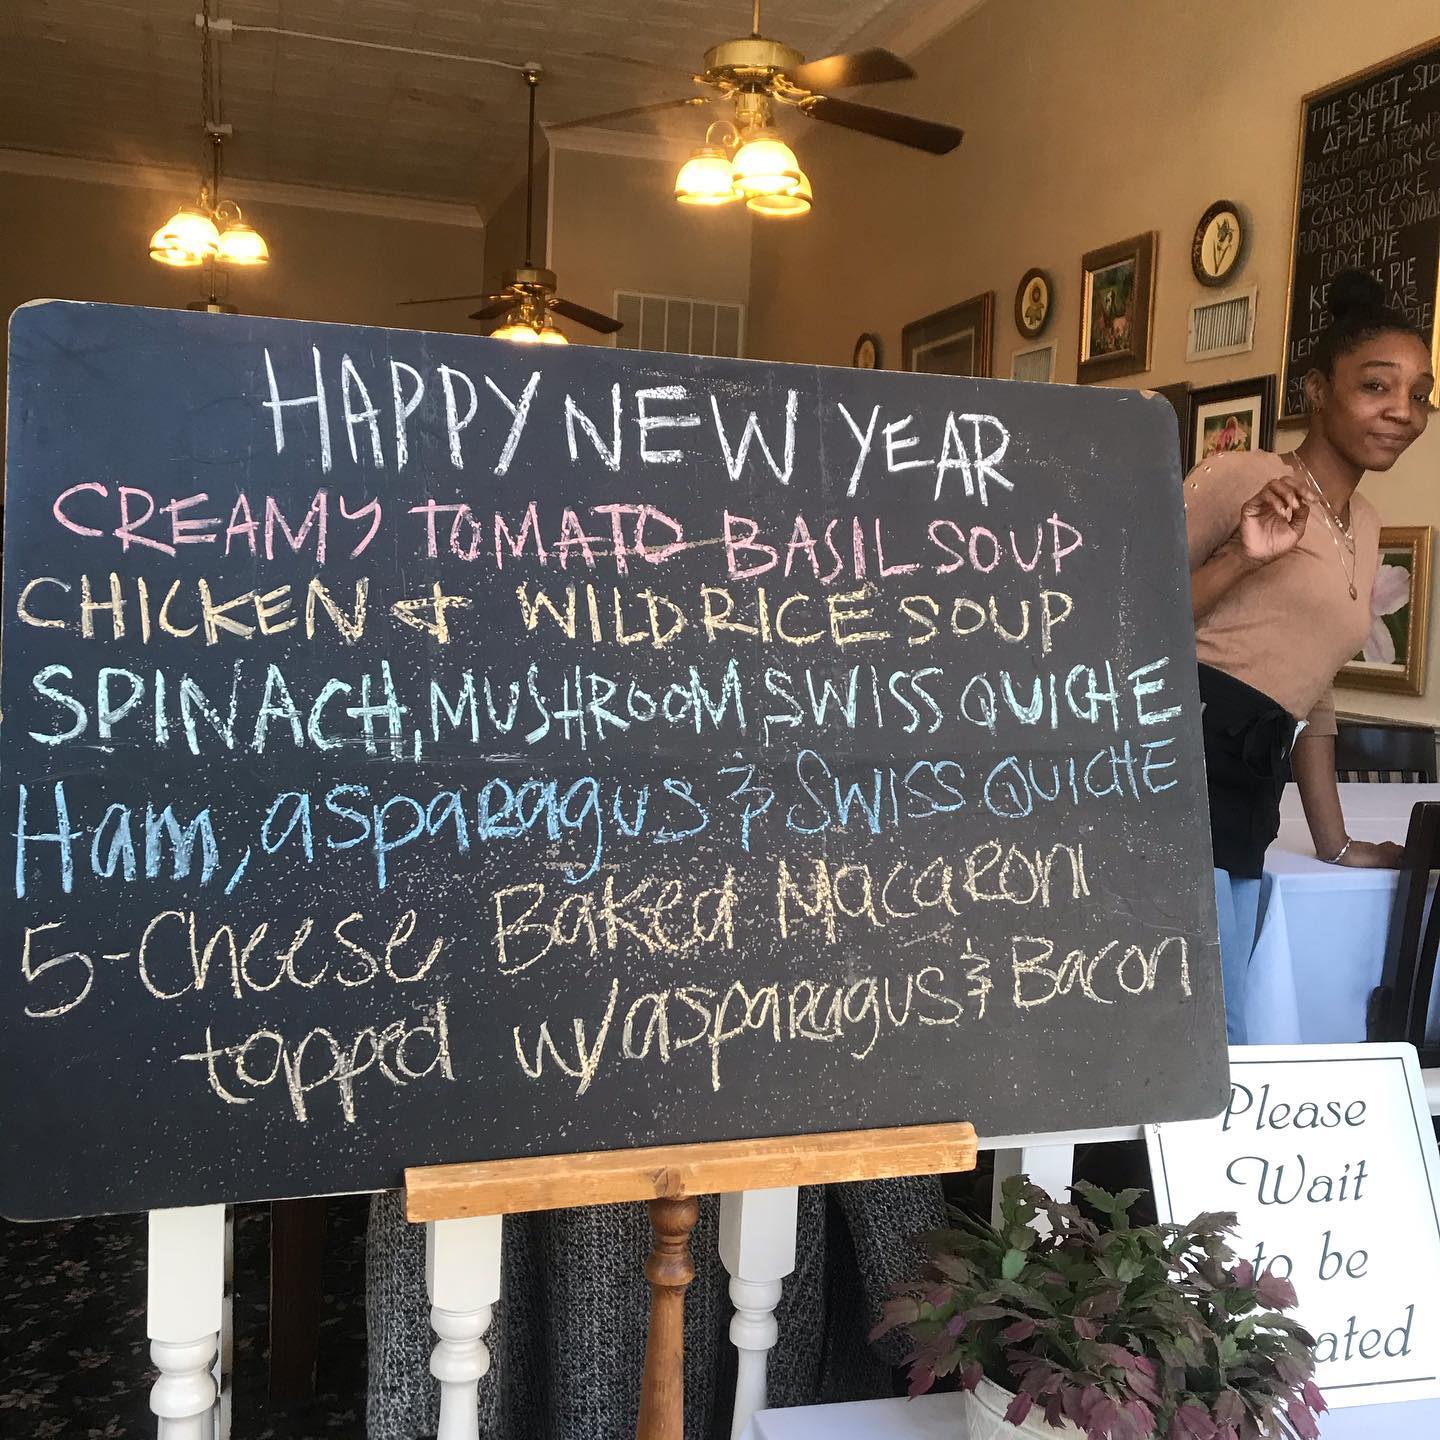 HAPPY NEW YEAR
CREAMY TOMATO BASIL SOUP
CHICKEN & WILD RICE SOUP
SPINACH, MUSHROOM, SWISS QUICHE
Ham, asparagus & SWISS QUICHE
5-Cheese Baked Macaroni
topped w/asparagus & Bacon
THE SWEET SID
APPLE PIE
BLACK BOTTOM PECAN
BREAD PUDDING
CARROT CAKE
FUDGE BROWNIE SUNDA
FUDGE PIE
KE PIE
Please
Wait
to be
ated